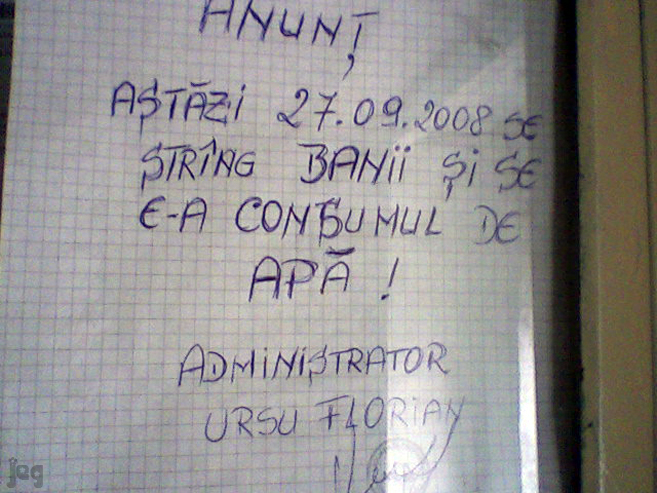 ANUNȚ
AȘTĂZI 27.09.2008 SE
ȘTRÎNG BANII ȘI SE
E-A CONȚSUMUL DE
APĂ!
ADMINIȘTRATOR
URSU FLORIAN
jag